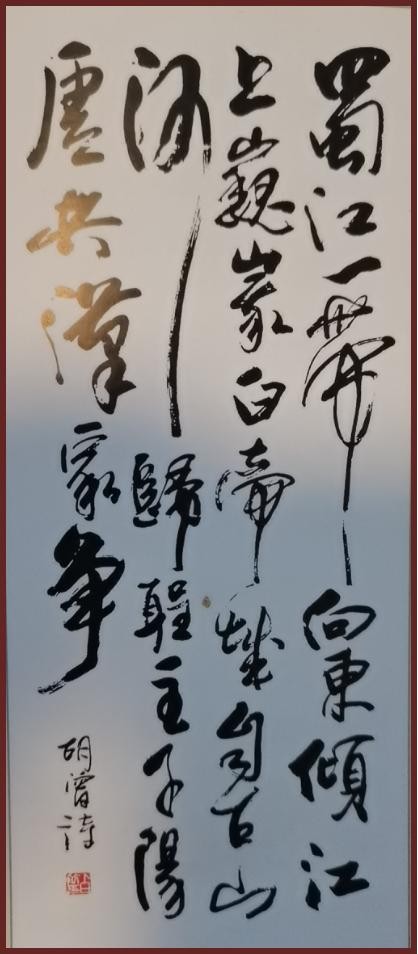 蜀江一帶向東傾江
上巍峨白帝城自古山
河歸聖主子陽
虛共漢家爭
胡曾詩